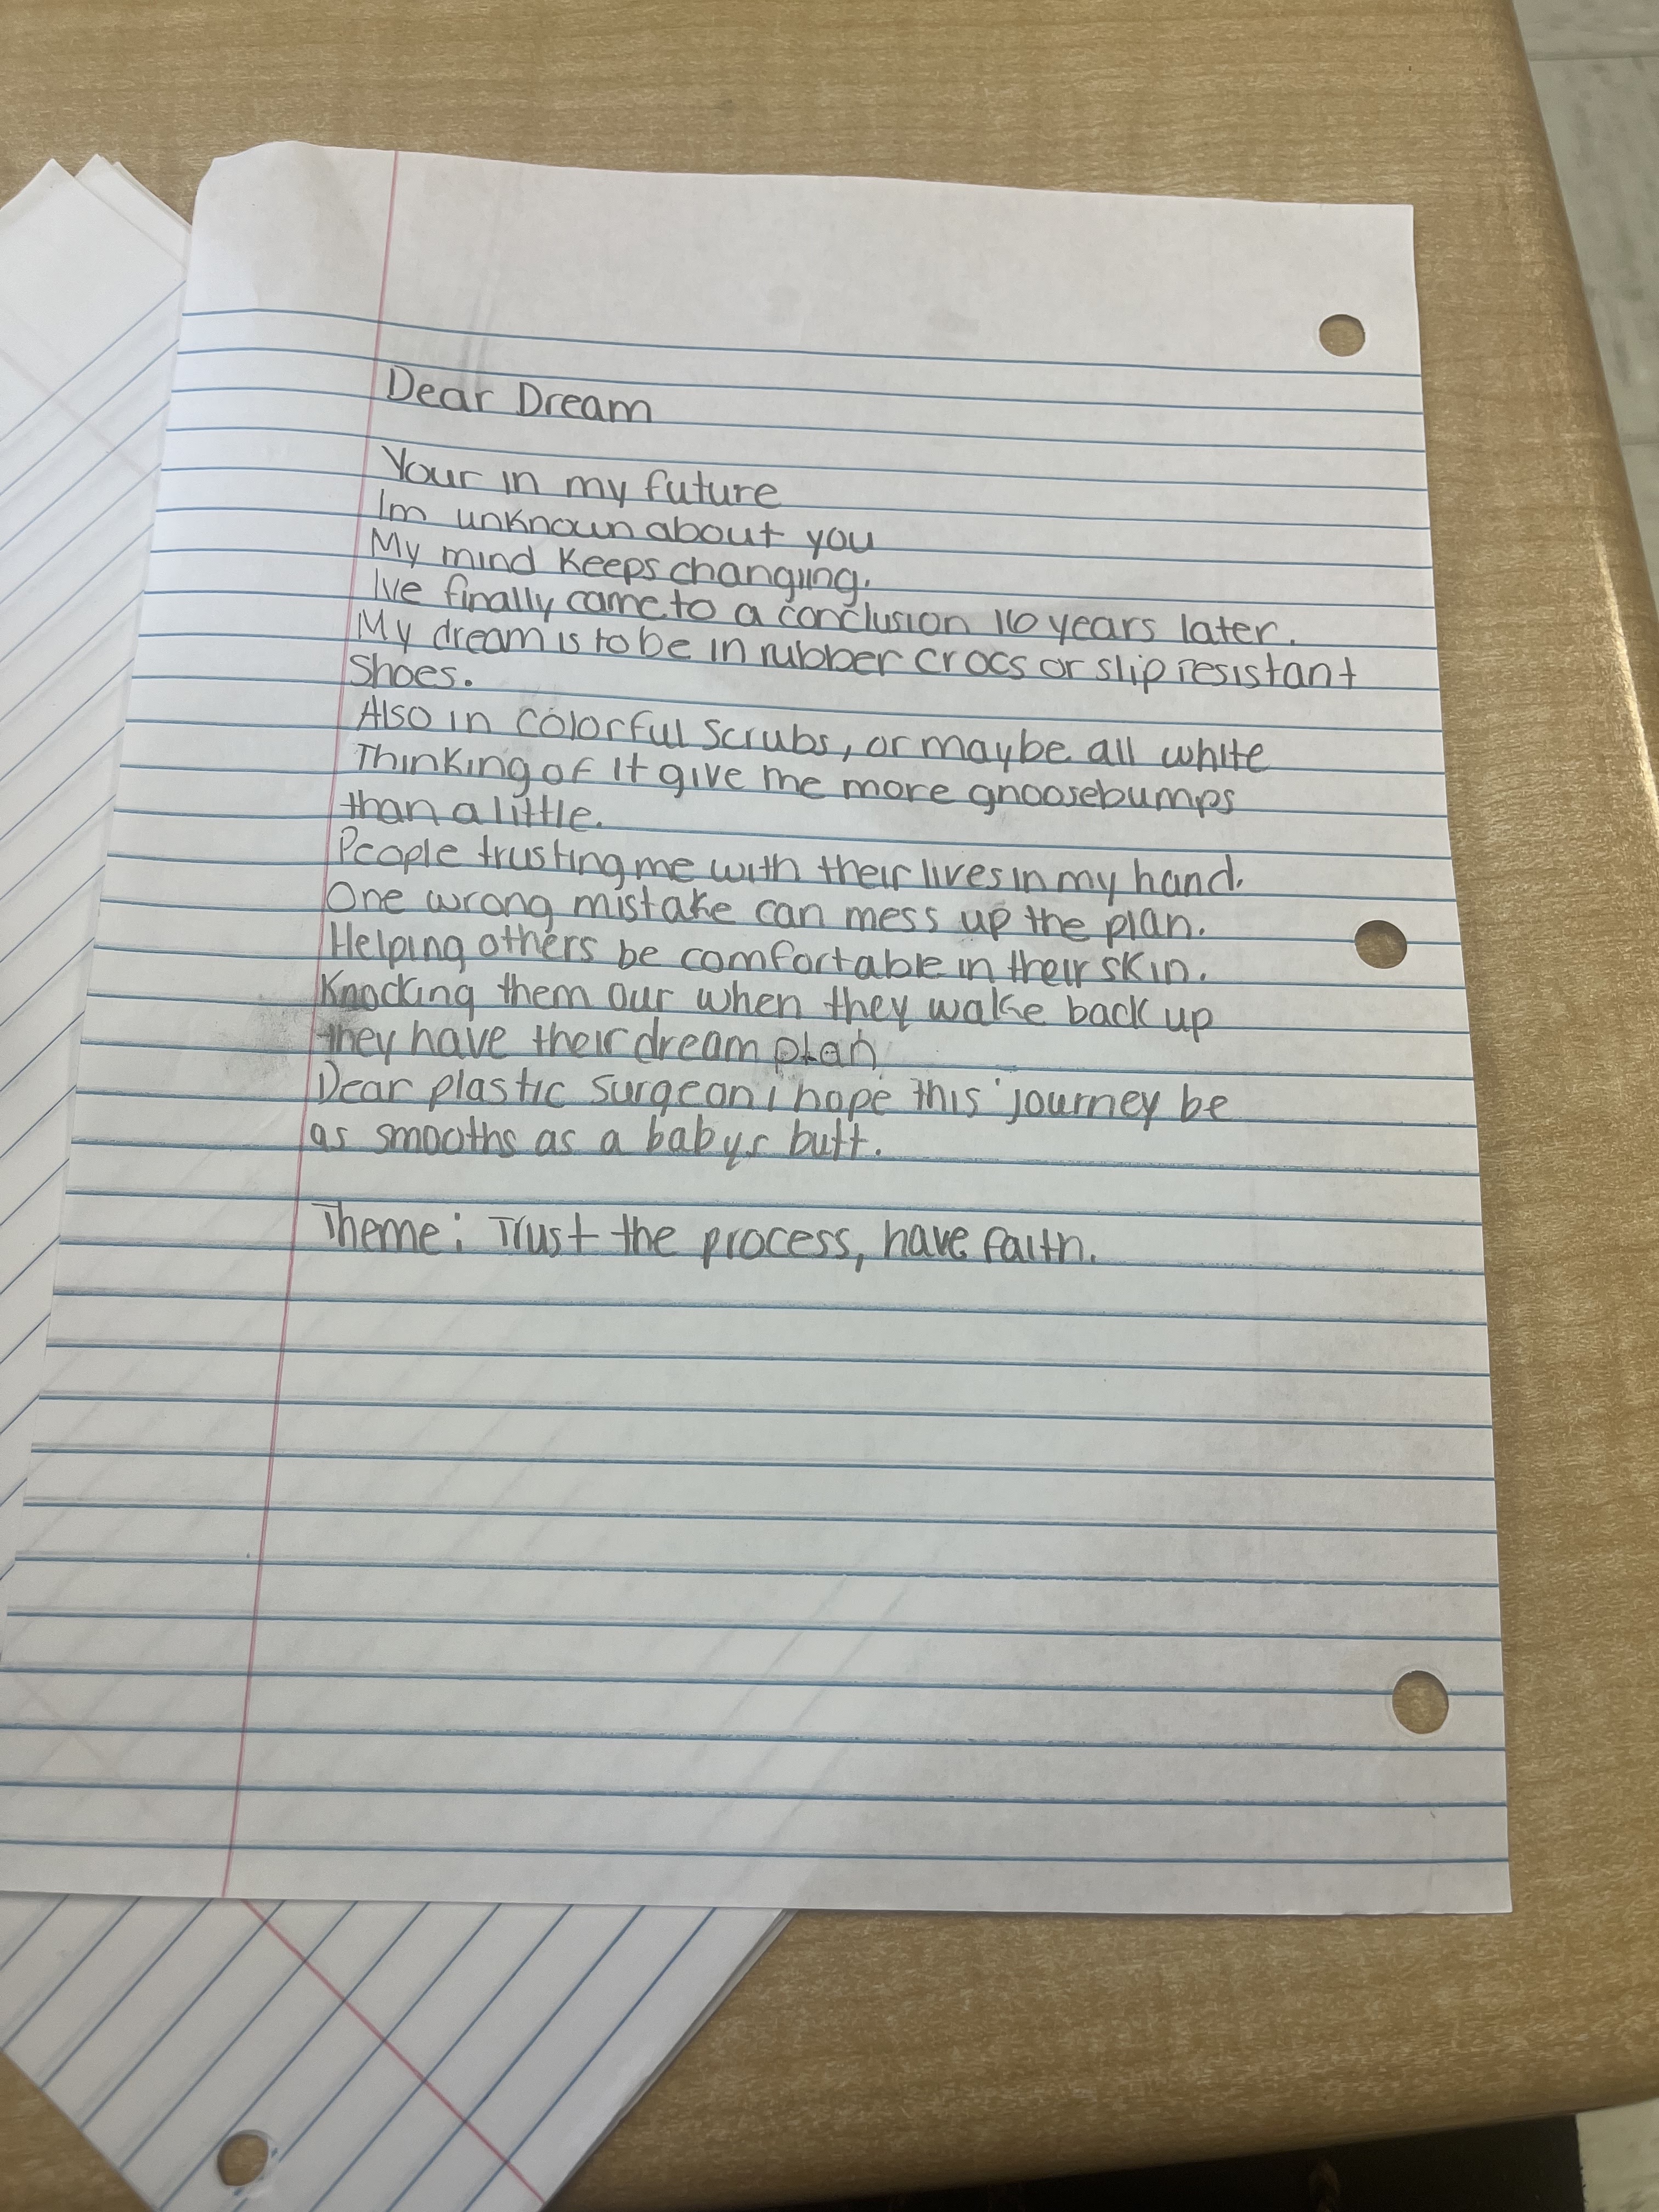 Dear Dream
Your in my future
Im unknown about you
My mind keeps changing.
Ive finally came to a conclusion 16 years later.
My dream is to be in rubber crocs or slip resistant
Shoes.
Also in colorful scrubs, or maybe all white
Thinking of it give me more gnoosebumps
than a little.
People trusting me with their lives in my hand.
One wrong mistake can mess up the plan.
Helping others be comfortable in their skin.
Knocking them our when they wake back up
they have their dream plan
Dear plastic surgeon i hope this journey be
as smooths as a babys butt.
Theme: Trust the process, have faith.